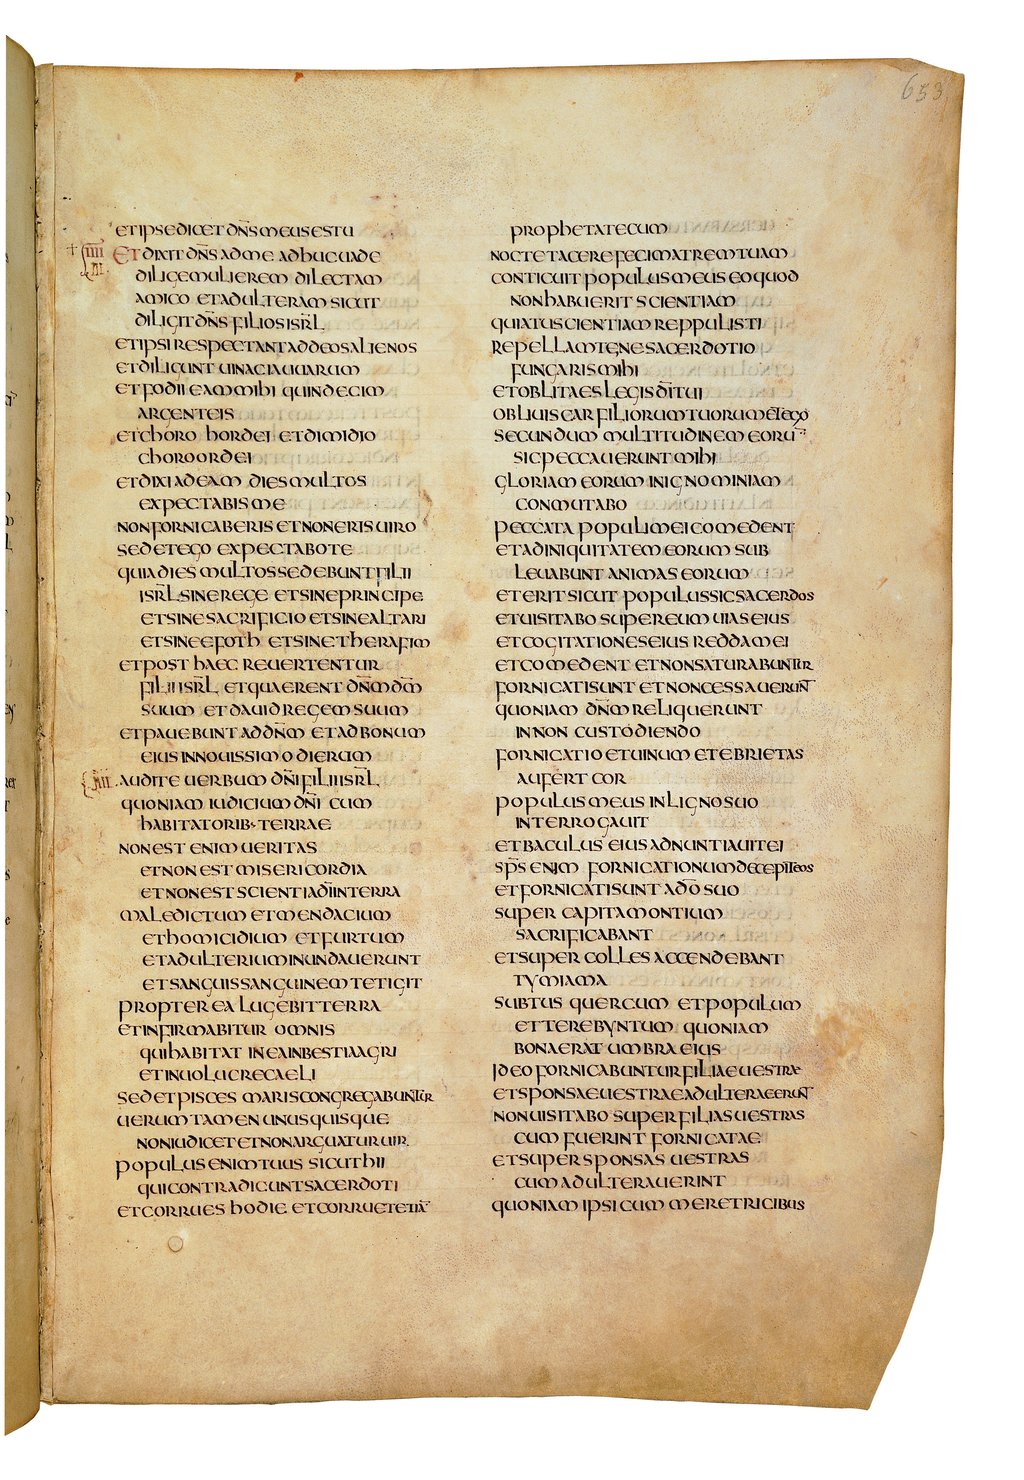 653
et ipse dicet dn̄s meus es tu
IIII Et dixit dn̄s ad me adhuc uade
dilige mulierem dilectam
amico et adulteram sicut
diligit dn̄s filios isrl̄
et ipsi respectant ad deos alienos
et diligunt uinacia uuarum
et fodii eam mihi quindecim
argenteis
et choro hordei et dimidio
choro ordei
et dixi ad eam dies multos
expectabis me
non fornicaberis et non eris uiro
sed et ego expectabo te
quia dies multos sedebunt filii
isrl̄ sine rege et sine principe
et sine sacrificio et sine altari
et sine efoth et sine therafim
et post haec reuertentur
filii isrl̄ et quaerent dn̄m dm̄
suum et dauid regem suum
et pauebunt ad dn̄m et ad bonum
eius in nouissimo dierum
audite uerbum dn̄i filii isrl̄
quoniam iudicium dn̄i cum
habitatorib· terrae
non est enim ueritas
et non est misericordia
et non est scientia dī in terra
maledictum et mendacium
et homicidium et furtum
et adulterium inundauerunt
et sanguis sanguinem tetigit
propter ea lugebit terra
et infirmabitur omnis
qui habitat in ea in bestia agri
et in uolucre caeli
sed et pisces maris congregabuntur
uerum tamen unusquisque
non iudicet et non arguatur uir
populus enim tuus sicut hii
qui contradicunt sacerdoti
et corrues hodie et corruet etiā
propheta tecum
nocte tacere feci matrem tuam
conticuit populus meus eo quod
non habuerit scientiam
quia tu scientiam reppulisti
repellam te ne sacerdotio
fungaris mihi
et oblita es legis dī tui
obliuiscar filiorum tuorum et ego
secundum multitudinem eorū
sic peccauerunt mihi
gloriam eorum in ignominiam
conmutabo
peccata populi mei comedent
et ad iniquitatem eorum sub
leuabunt animas eorum
et erit sicut populus sic sacerdos
et uisitabo super eum uias eius
et cogitationes eius reddam ei
et comedent et non saturabuntur
fornicati sunt et non cessauerunt
quoniam dn̄m reliquerunt
in non custodiendo
fornicatio et uinum et ebrietas
aufert cor
populus meus in ligno suo
interrogauit
et baculus eius adnuntiauit ei
sps̄ enim fornicationum decepit eos
et fornicati sunt a dō suo
super capita montium
sacrificabant
et super colles accendebant
tymiama
subtus quercum et populum
et terebyntum quoniam
bona erat umbra eius
Ideo fornicabuntur filiae uestrae
et sponsae uestrae adulterae erunt
non uisitabo super filias uestras
cum fuerint fornicatae
et super sponsas uestras
cum adulterauerint
quoniam ipsi cum meretricibus